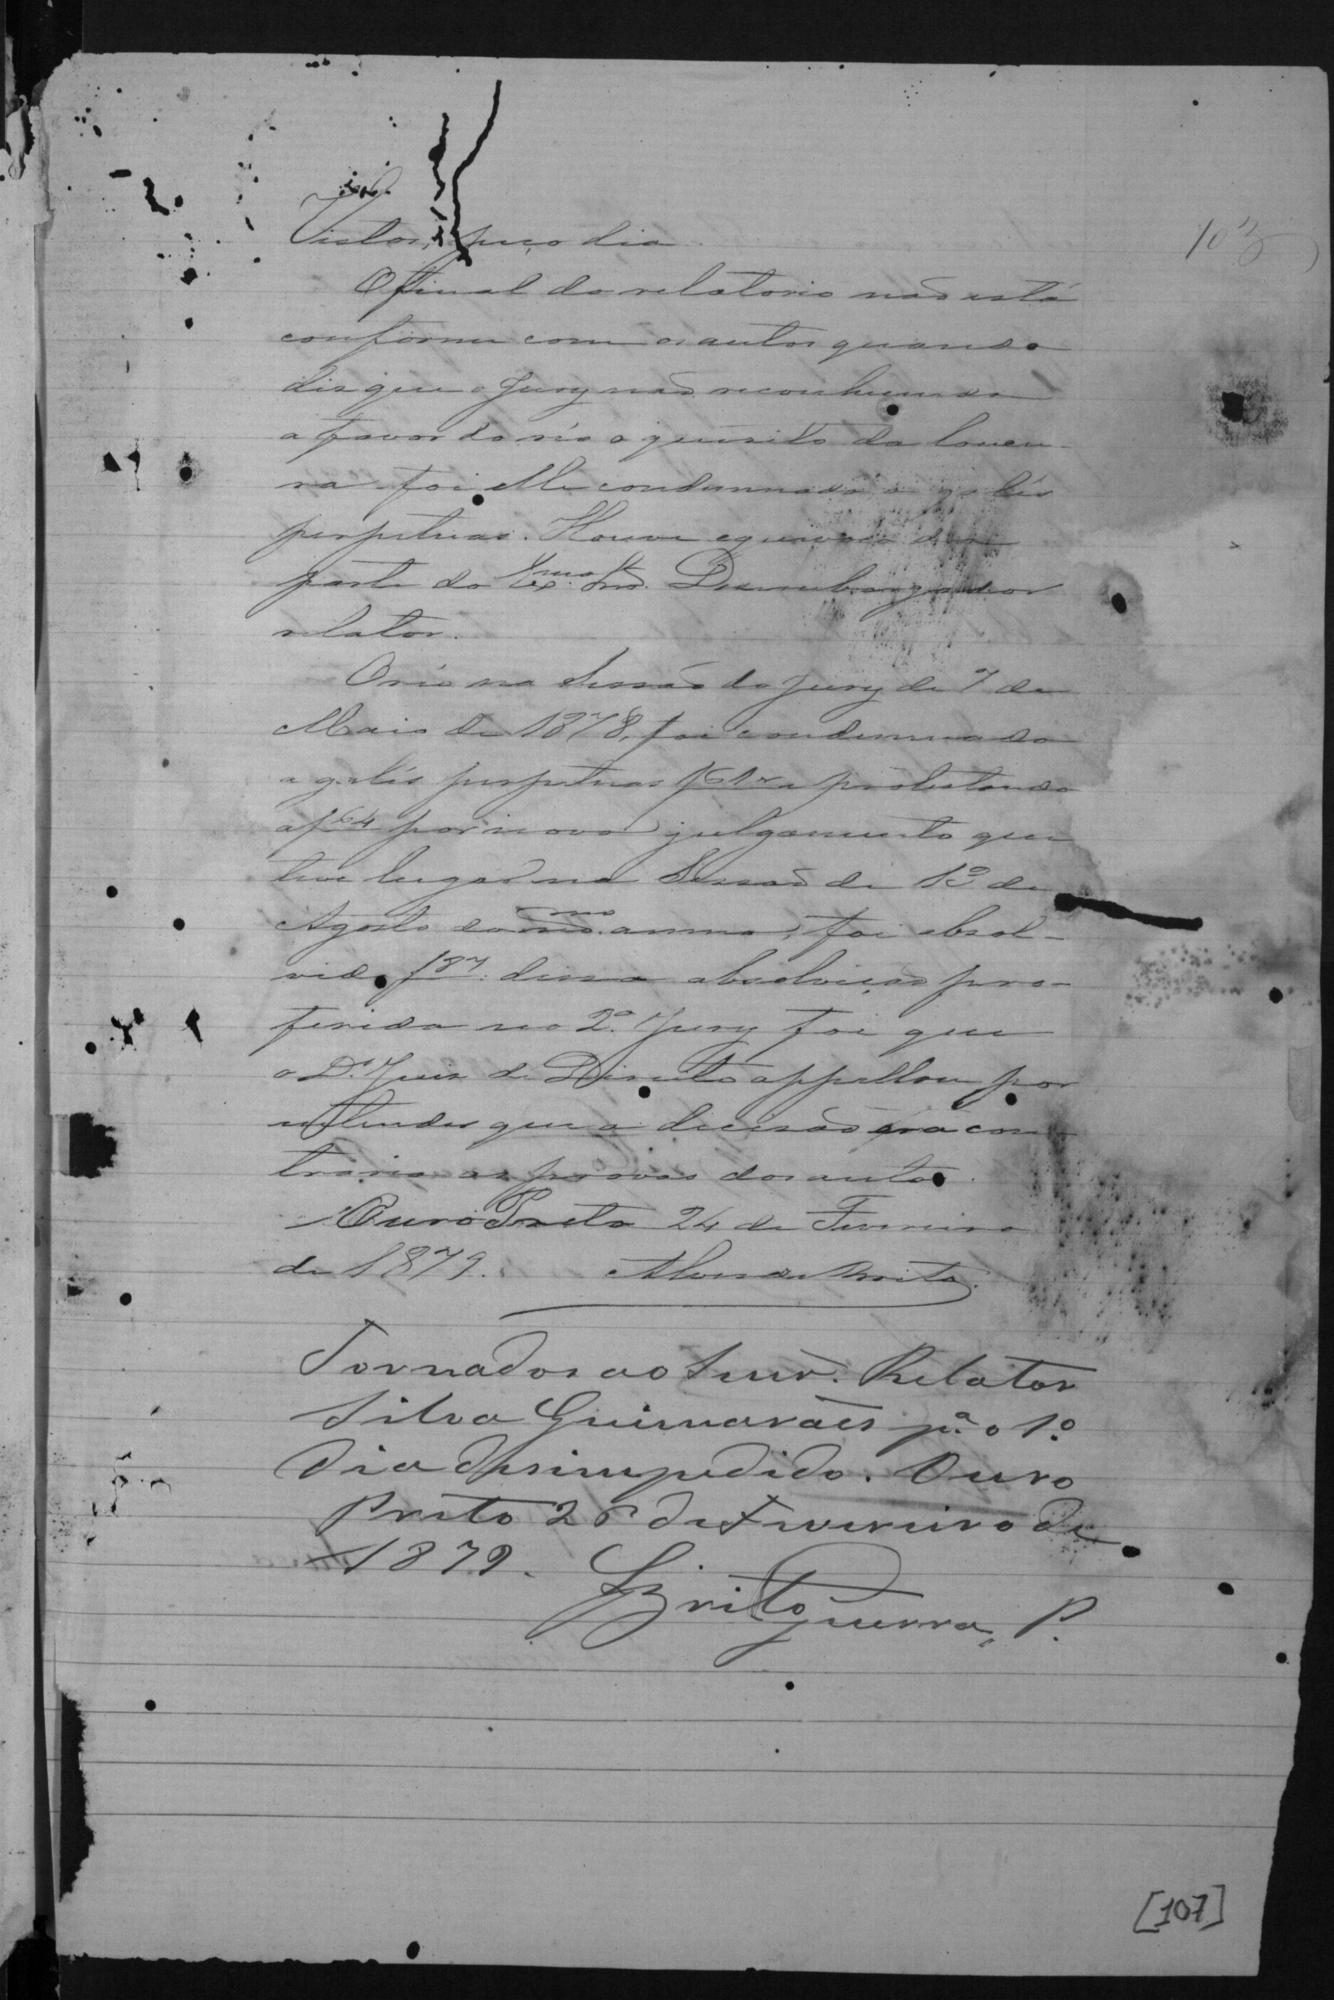 Vistos, peço dia.
103
O final do relatorio não está
conforme com os autos quando
diz que o Jury não reconhecendo
a favor do réo o quesito da loucu-
ra foi elle condemnado a galés
perpetuas. Houve equivoco da
parte do Exmo. Snr. Desembargador
relator.
O réo na Sessão do Jury de 7 de
Maio de 1878, foi condemnado
a galés perpetuas f 61 v e protestando
a f 64 por novo julgamento que
teve lugar na Sessão de 12 de
Agosto do mmo. anno, foi absol-
vido f 87. dessa absolvição pro-
ferida no 2º. Jury foi que
o Dr. Juiz de Direito appellou por
entender que a decisão era con-
traria as provas dos autos.
Ouro Preto 24 de Fevereiro
de 1879. Alves de Brito.
Tornados ao Senr. Relator
Silva Guimarães pª. o 1º.
dia desimpedido. Ouro
Preto de Fevereiro de
1879.
Brito Guerra, P.
[107]